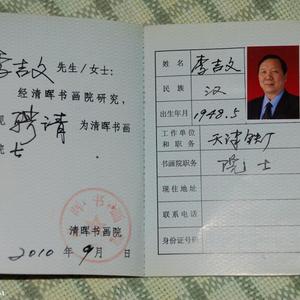 李吉文 先生/女士：
经清晖书画院研究，
现 聘请 为清晖书画
院士
清晖书画院
2010 年 9 月
姓名 李吉文
民族 汉
出生年月 1948.5
工作单位
和职务 天津铁厂
书画院职务 院士
现住地址
联系电话
身份证号码